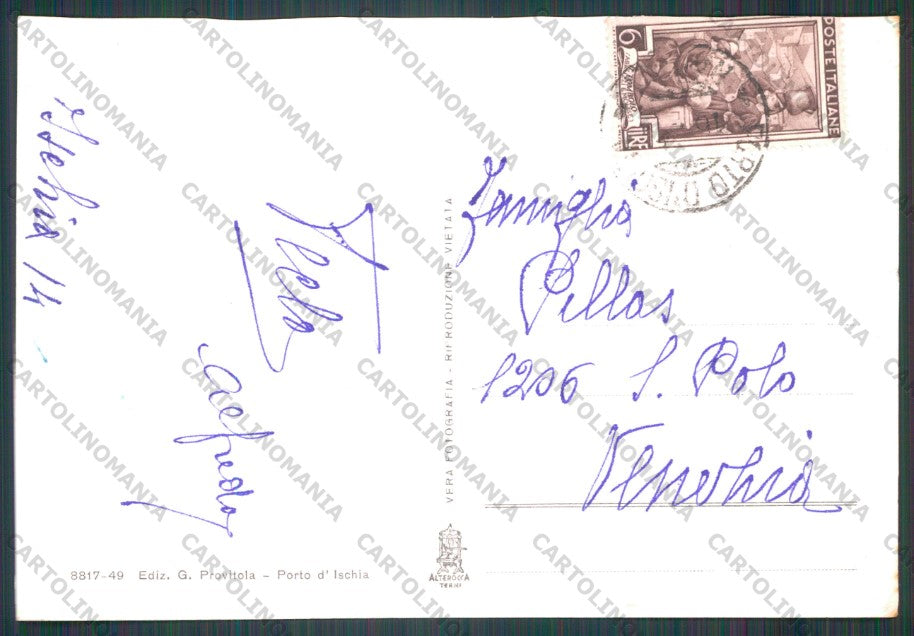 Ischia 14
Alfredo
Famiglia
Pillas
1206 S. Polo
Venezia
6
LIRE
POSTE ITALIANE
VERA FOTOGRAFIA - RIPRODUZIONE VIETATA
8817-49 Ediz. G. Provitola - Porto d' Ischia
ALTEROCCA
TERNI
CARTOLINOMANIA